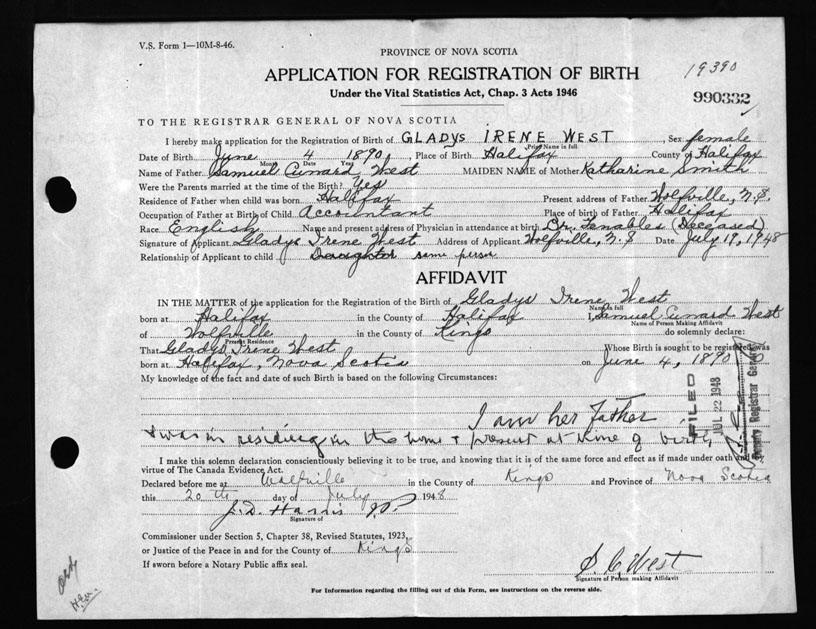 V.S. Form 1—10M-8-46.
PROVINCE OF NOVA SCOTIA
19390
APPLICATION FOR REGISTRATION OF BIRTH
Under the Vital Statistics Act, Chap. 3 Acts 1946
990332
TO THE REGISTRAR GENERAL OF NOVA SCOTIA
I hereby make application for the Registration of Birth of GLADYS IRENE WEST Sex female
Print Name in full
Date of Birth June 4 1890 Place of Birth Halifax County of Halifax
Month Date Year
Name of Father Samuel Cunard West MAIDEN NAME of Mother Katharine Smith
Were the Parents married at the time of the Birth? Yes
Residence of Father when child was born Halifax Present address of Father Wolfville, N.S.
Occupation of Father at Birth of Child Accountant Place of birth of Father Halifax
Race English Name and present address of Physician in attendance at birth Dr. Tenables (Deceased)
Signature of Applicant Gladys Irene West Address of Applicant Wolfville, N.S Date July 19, 1948
Relationship of Applicant to child Daughter same person
AFFIDAVIT
IN THE MATTER of the application for the Registration of the Birth of Gladys Irene West
Name in full
born at Halifax in the County of Halifax I, Samuel Cunard West
Name of Person Making Affidavit
of Wolfville in the County of Kings do solemnly declare:
Present Residence
That Gladys Irene West Whose Birth is sought to be registered was
born at Halifax, Nova Scotia on June 4, 1890
My knowledge of the fact and date of such Birth is based on the following Circumstances:
I am her father
& was in residing in the home & present at time of birth
FILED
JUL 22 1948
Deputy Registrar General
I make this solemn declaration conscientiously believing it to be true, and knowing that it is of the same force and effect as if made under oath and by
virtue of The Canada Evidence Act.
Declared before me at Wolfville in the County of Kings and Province of Nova Scotia
this 20th day of July 1948
J. D. Harris J.P.
Signature of
Commissioner under Section 5, Chapter 38, Revised Statutes, 1923,
or Justice of the Peace in and for the County of Kings
If sworn before a Notary Public affix seal.
S. C. West
Signature of Person making Affidavit
For Information regarding the filling out of this Form, see instructions on the reverse side.